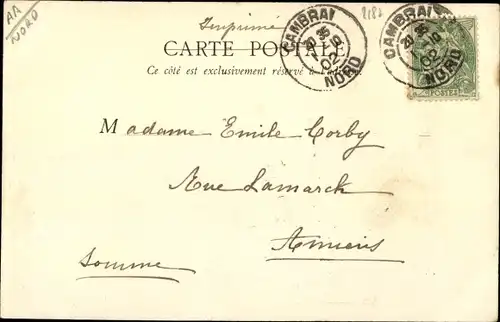 AA
NORD
Imprimé
2182
CARTE POSTALE
Ce côté est exclusivement réservé à
CAMBRAI
NORD
CAMBRAI
NORD
POSTES
Madame Emile Corby
Rue Lamarck
Amiens
Somme